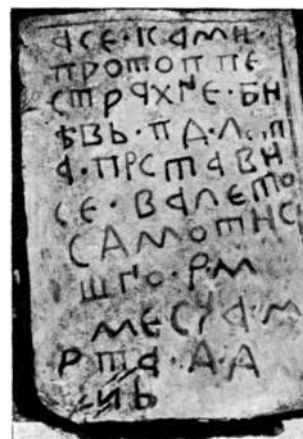 АСЕ·КАМН·
ПРОТОП ПЕ
СТРАХNЕ·БН
ѢВЬ·П Д·Л
А·ПРСТАВН
СЕ·ВАЛЕТО
САМОТНС
ШГО·Р·М
МЕСЧА·М
РТА·Д·А
ИЬ